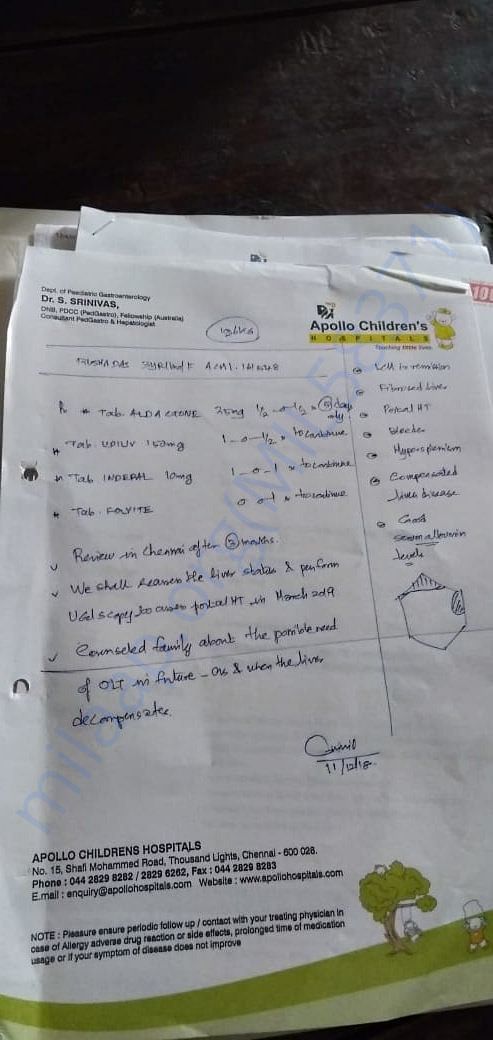 Dept. of Paediatric Gastroenterology
Dr. S. SRINIVAS,
DNB, PDCC (PedGastro), Fellowship (Australia)
Consultant PedGastro & Hepatologist
Apollo Children's
HOSPITALS
Touching little lives
100
℞ * Tab. ALDACTONE 25mg 1/2 - 0 - 1/2 x 5 days only
* Tab. UDILIV 150mg 1 - 0 - 1/2 x to continue
* Tab INDERAL 10mg 1 - 0 - 1 x to continue
* Tab. FOLVITE 0 0 - 1 x to continue
LCH in remission
Fibrosed liver
Portal HT
Bleeder
Hypersplenism
Compensated
liver disease
Good
serum albumin
levels
✓ Review in Chennai after 3 months.
✓ We shall reassess the liver status & perform
UGI scopy to assess portal HT in March 2019
✓ Counseled family about the possible need
of OLT in future - as & when the liver
decompensates.
11/12/18
APOLLO CHILDRENS HOSPITALS
No. 15, Shafi Mohammed Road, Thousand Lights, Chennai - 600 028.
Phone : 044 2829 8282 / 2829 6262, Fax : 044 2829 8283
E.mail : enquiry@apollohospitals.com Website : www.apollohospitals.com
NOTE : Pleasure ensure periodic follow up / contact with your treating physician in
case of Allergy adverse drug reaction or side effects, prolonged time of medication
usage or if your symptom of disease does not improve